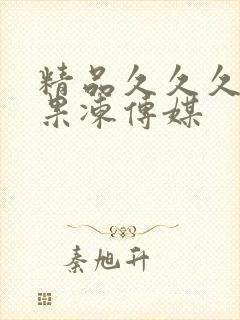 精品久久久
果凍傳媒
秦旭升